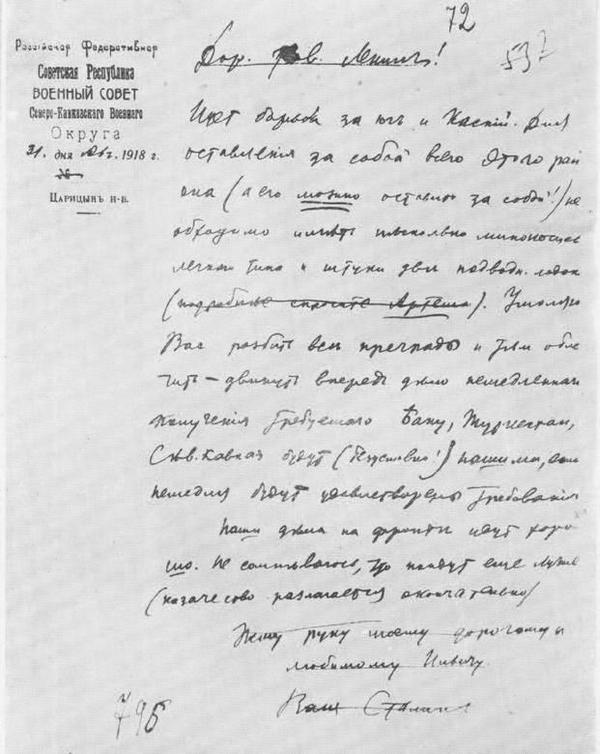 72
53?
Российская Федеративная
Советская Республика
ВОЕННЫЙ СОВЕТ
Северо-Кавказскаго Военнаго
Округа
31. дня Авг. 1918 г.
№
Царицынъ н-в.
Дор. тов. Ленин!
Идет борьба за юг и Каспий. Для
оставления за собой всего этого рай
она (а его можно оставить за собой!) не
обходимо иметь несколько миноносцев
легкого типа и штуки две подводн. лодок
(подробнее спросите Артема). Умоляю
Вас разбить все преграды и тем обле
чить — двинуть вперед дело немедленного
получения требуемого. Баку, Туркестан,
Сев. Кавказ будут (безусловно!) нашими, если
немедля будут удовлетворены требования
Наши дела на фронте идут хоро
шо. Не сомневаюсь, что пойдут еще лучше
(казачество разлагается окончательно)
Жму руку моему дорогому и
любимому Ильичу.
Ваш Сталин
795